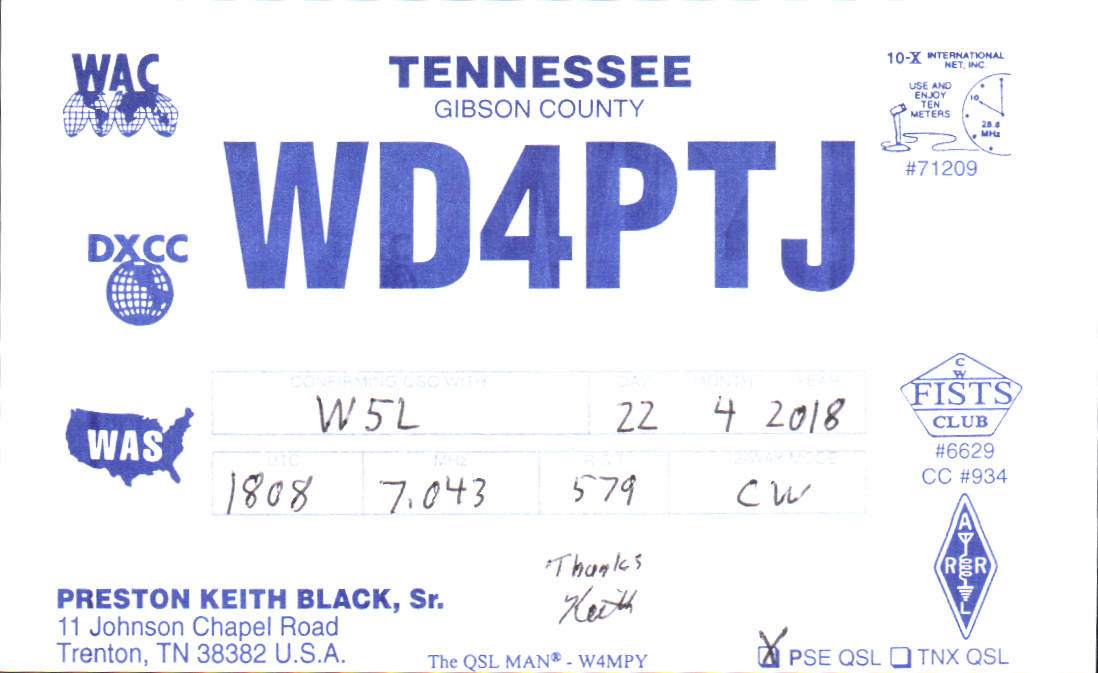 WAC
TENNESSEE
GIBSON COUNTY
WD4PTJ
10-X INTERNATIONAL
NET, INC.
USE AND
ENJOY
TEN
METERS
10
28.8
MHz
#71209
DXCC
WAS
CONFIRMING QSO WITH DAY MONTH YEAR
W5L 22 4 2018
UTC MHz R S T 2-WAY MODE
1808 7.043 579 CW
CW
FISTS
CLUB
#6629
CC #934
ARRL
Thanks
Keith
PRESTON KEITH BLACK, Sr.
11 Johnson Chapel Road
Trenton, TN 38382 U.S.A.
The QSL MAN® - W4MPY
X PSE QSL TNX QSL